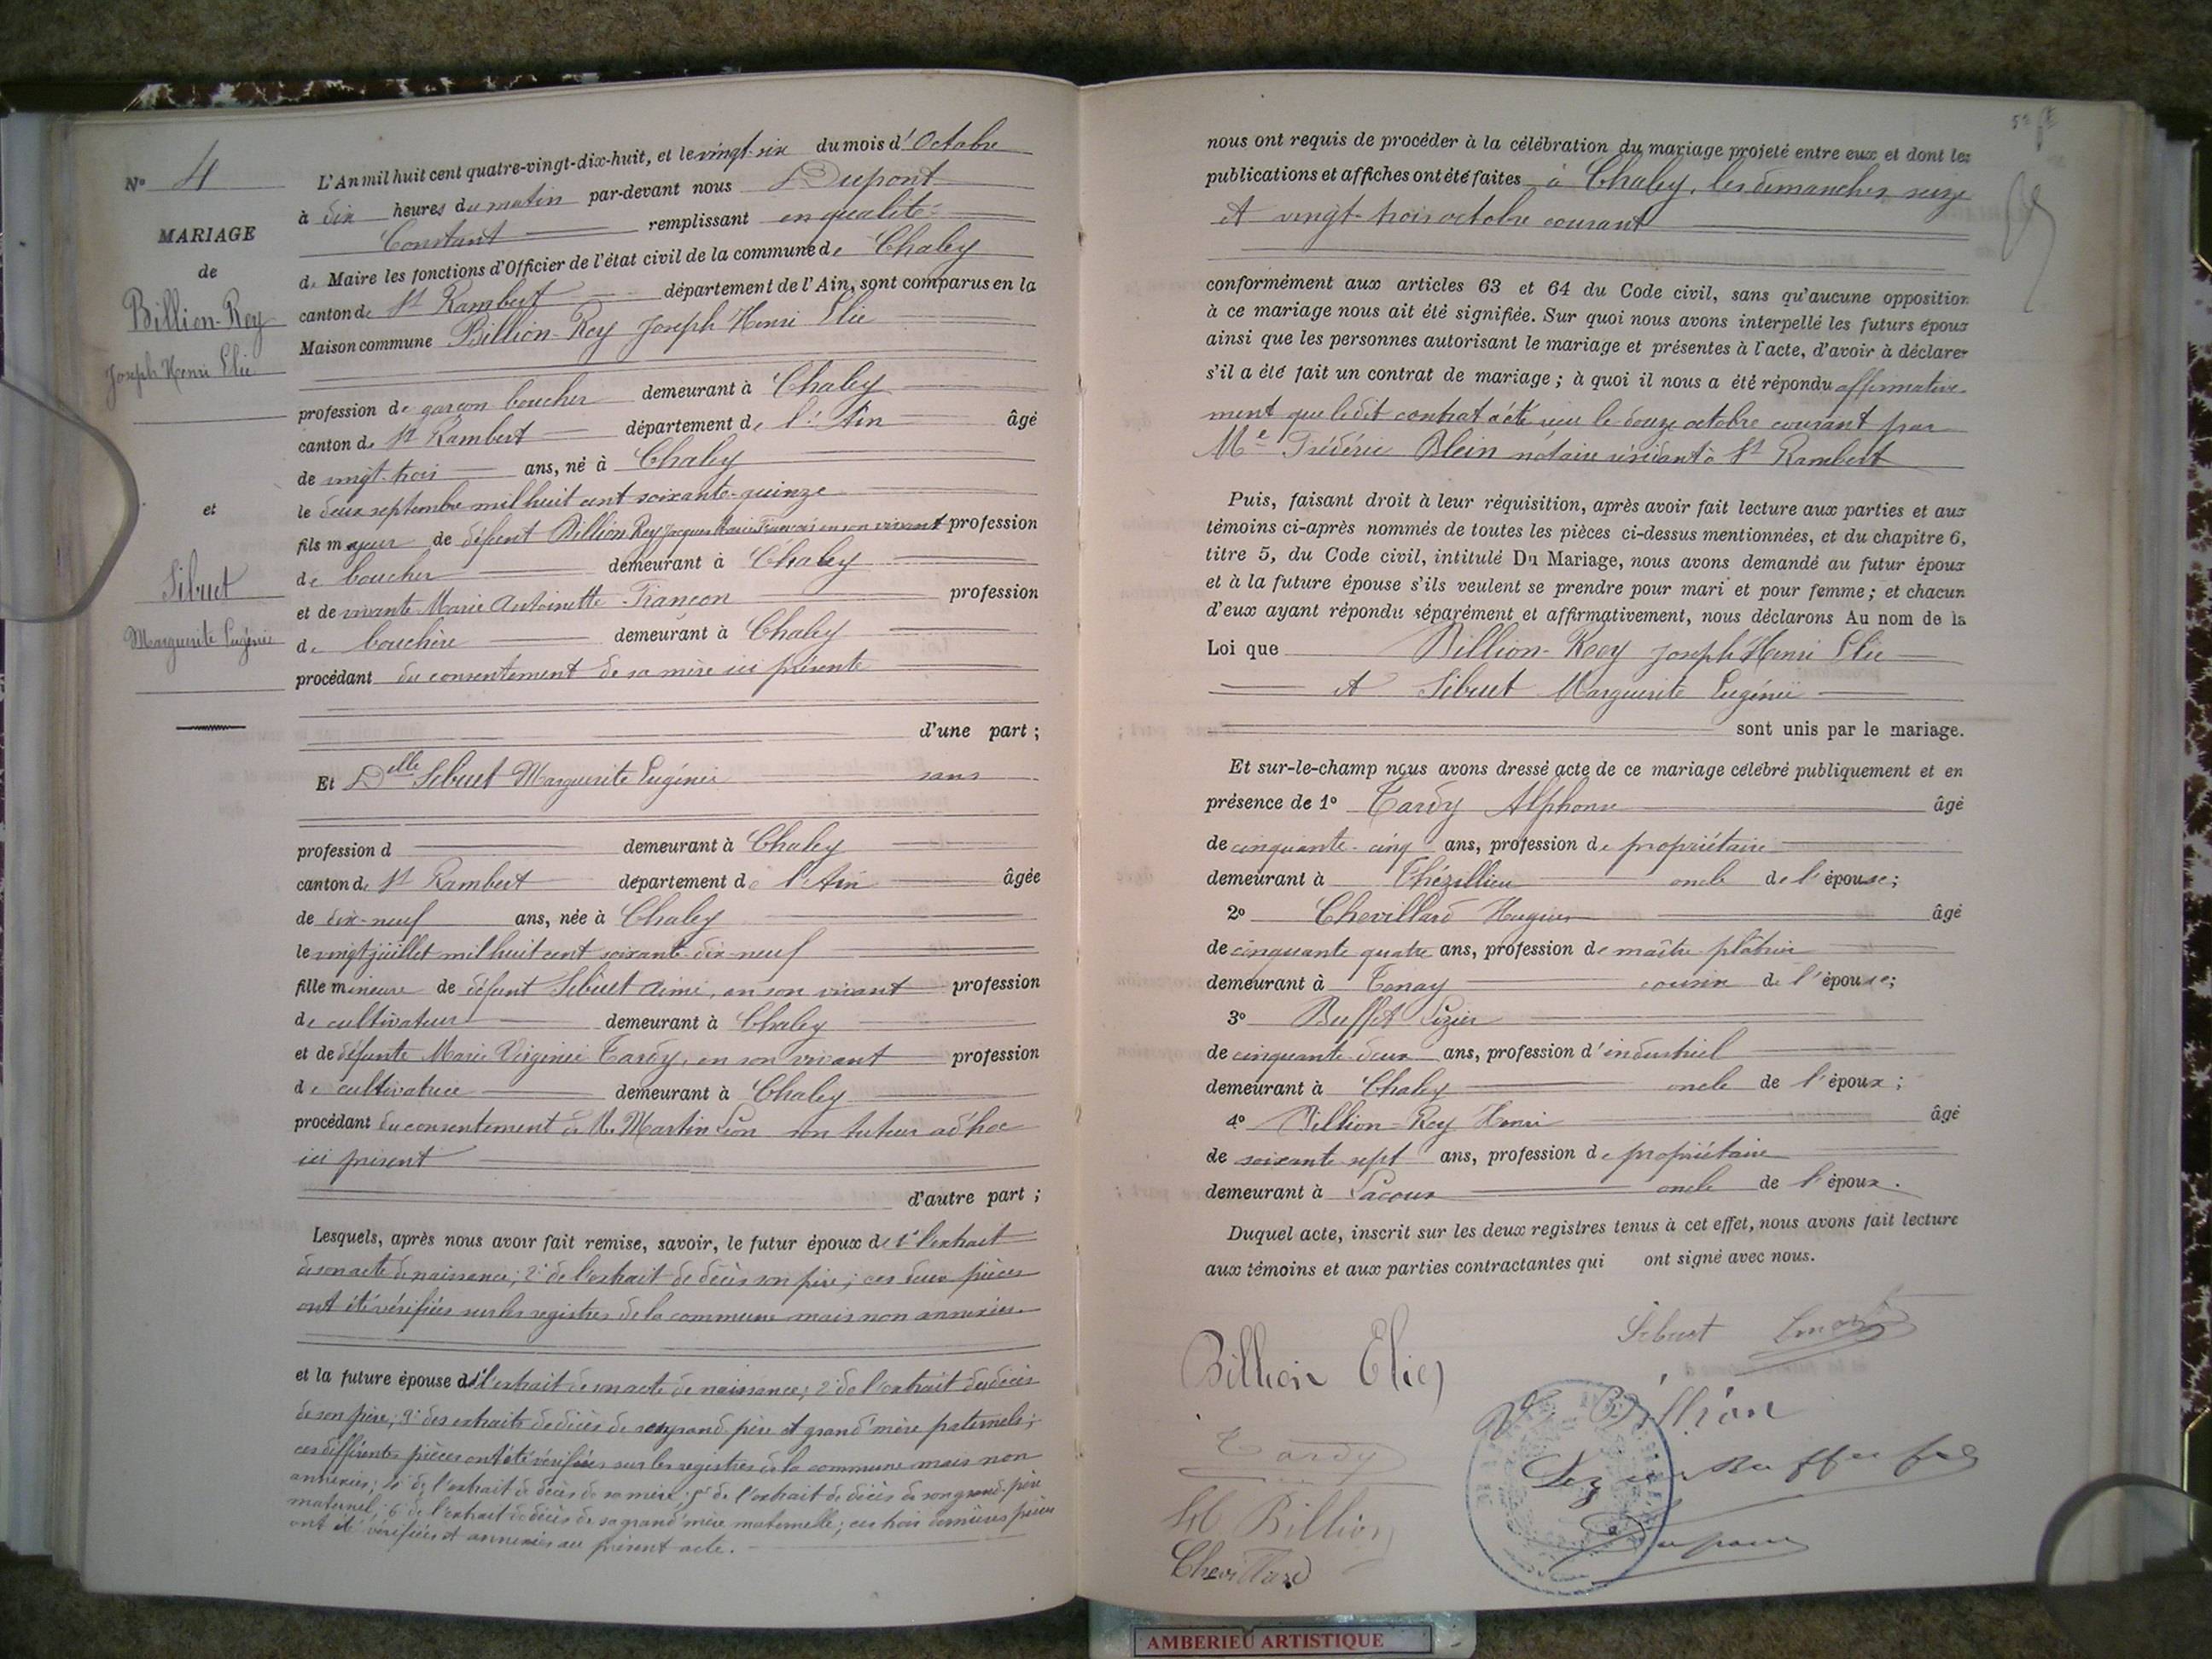 N° 4
MARIAGE
de
Billion-Rey
Joseph Henri Elie
et
Sibuet
Marguerite Eugénie
L'An mil huit cent quatre-vingt-dix-huit, et le vingt-six du mois d'Octobre
à dix heures du matin par-devant nous Dupont
Constant remplissant en qualité
de Maire les fonctions d'Officier de l'état civil de la commune de Chaley
canton de St Rambert département de l'Ain, sont comparus en la
Maison commune Billion-Rey Joseph Henri Elie
profession de garçon boucher demeurant à Chaley
canton de St Rambert département de l'Ain âgé
de vingt-trois ans, né à Chaley
le deux septembre mil huit cent soixante-quinze
fils majeur de défunt Billion Rey Jacques Marie François en son vivant profession
de boucher demeurant à Chaley
et de vivante Marie Antoinette Françon profession
de bouchère demeurant à Chaley
procédant du consentement de sa mère ici présente
d'une part ;
Et Delle Sibuet Marguerite Eugénie sans
profession d demeurant à Chaley
canton de St Rambert département de l'Ain âgée
de dix-neuf ans, née à Chaley
le vingt juillet mil huit cent soixante-dix-neuf
fille mineure de défunt Sibuet Aimé, en son vivant profession
de cultivateur demeurant à Chaley
et de défunte Marie Virginie Tardy, en son vivant profession
de cultivatrice demeurant à Chaley
procédant du consentement de M. Martin Léon son tuteur ad'hoc
ici présent
d'autre part ;
Lesquels, après nous avoir fait remise, savoir, le futur époux de 1° l'extrait
de son acte de naissance ; 2° de l'extrait de décès son père ; ces deux pièces
ont été vérifiées sur les registres de la commune mais non annexées.
et la future épouse d 1° l'extrait de son acte de naissance ; 2° de l'extrait de décès
de son père ; 3° des extraits de décès de son grand père et grand'mère paternels ;
ces différentes pièces ont été vérifiées sur les registres de la commune mais non
annexées ; 4° de l'extrait de décès de sa mère ; 5° de l'extrait de décès de son grand-père
maternel ; 6° de l'extrait de décès de sa grand'mère maternelle ; ces trois dernières pièces
ont été vérifiées et annexées au présent acte.
nous ont requis de procéder à la célébration du mariage projeté entre eux et dont les
publications et affiches ont été faites à Chaley, les dimanches seize
et vingt-trois octobre courant
conformément aux articles 63 et 64 du Code civil, sans qu'aucune opposition
à ce mariage nous ait été signifiée. Sur quoi nous avons interpellé les futurs époux
ainsi que les personnes autorisant le mariage et présentes à l'acte, d'avoir à déclarer
s'il a été fait un contrat de mariage ; à quoi il nous a été répondu affirmative-
ment que ledit contrat a été reçu le douze octobre courant par
Me Frédéric Blein notaire résidant à St Rambert
Puis, faisant droit à leur réquisition, après avoir fait lecture aux parties et aux
témoins ci-après nommés de toutes les pièces ci-dessus mentionnées, et du chapitre 6,
titre 5, du Code civil, intitulé Du Mariage, nous avons demandé au futur époux
et à la future épouse s'ils veulent se prendre pour mari et pour femme ; et chacun
d'eux ayant répondu séparément et affirmativement, nous déclarons Au nom de la
Loi que Billion-Rey Joseph Henri Elie
et Sibuet Marguerite Eugénie
sont unis par le mariage.
Et sur-le-champ nous avons dressé acte de ce mariage célébré publiquement et en
présence de 1° Tardy Alphonse âgé
de cinquante-cinq ans, profession de propriétaire
demeurant à Thézillieu oncle de l'épouse ;
2° Chevillard Hugues âgé
de cinquante quatre ans, profession de maître plâtrier
demeurant à Tenay cousin de l'épouse ;
3° Buffet Lézier
de cinquante-deux ans, profession d'industriel
demeurant à Chaley oncle de l'époux ;
4° Billion-Rey Henri âgé
de soixante sept ans, profession de propriétaire
demeurant à Lacoux oncle de l'époux.
Duquel acte, inscrit sur les deux registres tenus à cet effet, nous avons fait lecture
aux témoins et aux parties contractantes qui ont signé avec nous.
Sibuet
Billion Elie
Billion
Tardy
H Billion
Chevillard
Dupont
AMBERIEU ARTISTIQUE